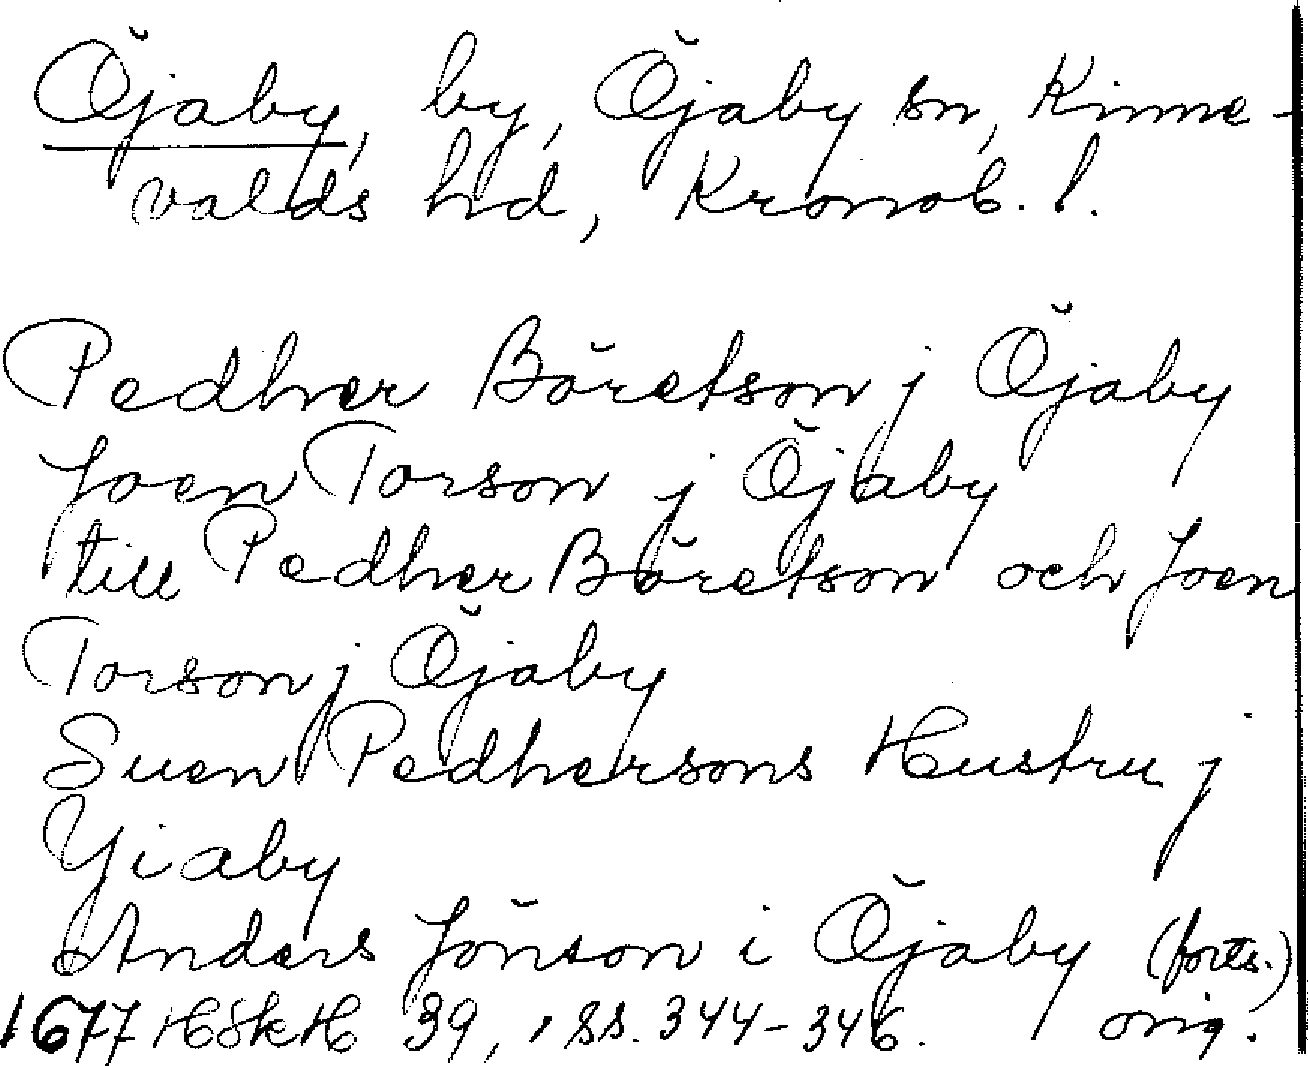 Öjaby, by, Öjaby sn, Kinne-
valds hd, Kronob. l.
Pedher Böretson j Öjaby
Joen Torson j Öjaby
till Pedher Böretson och Joen
Torson j Öjaby
Suen Pedhersons Hustru j
Yiaby
Anders Jönson i Öjaby (forts.)
1677 HSkH 39, ss. 344-346. orig.